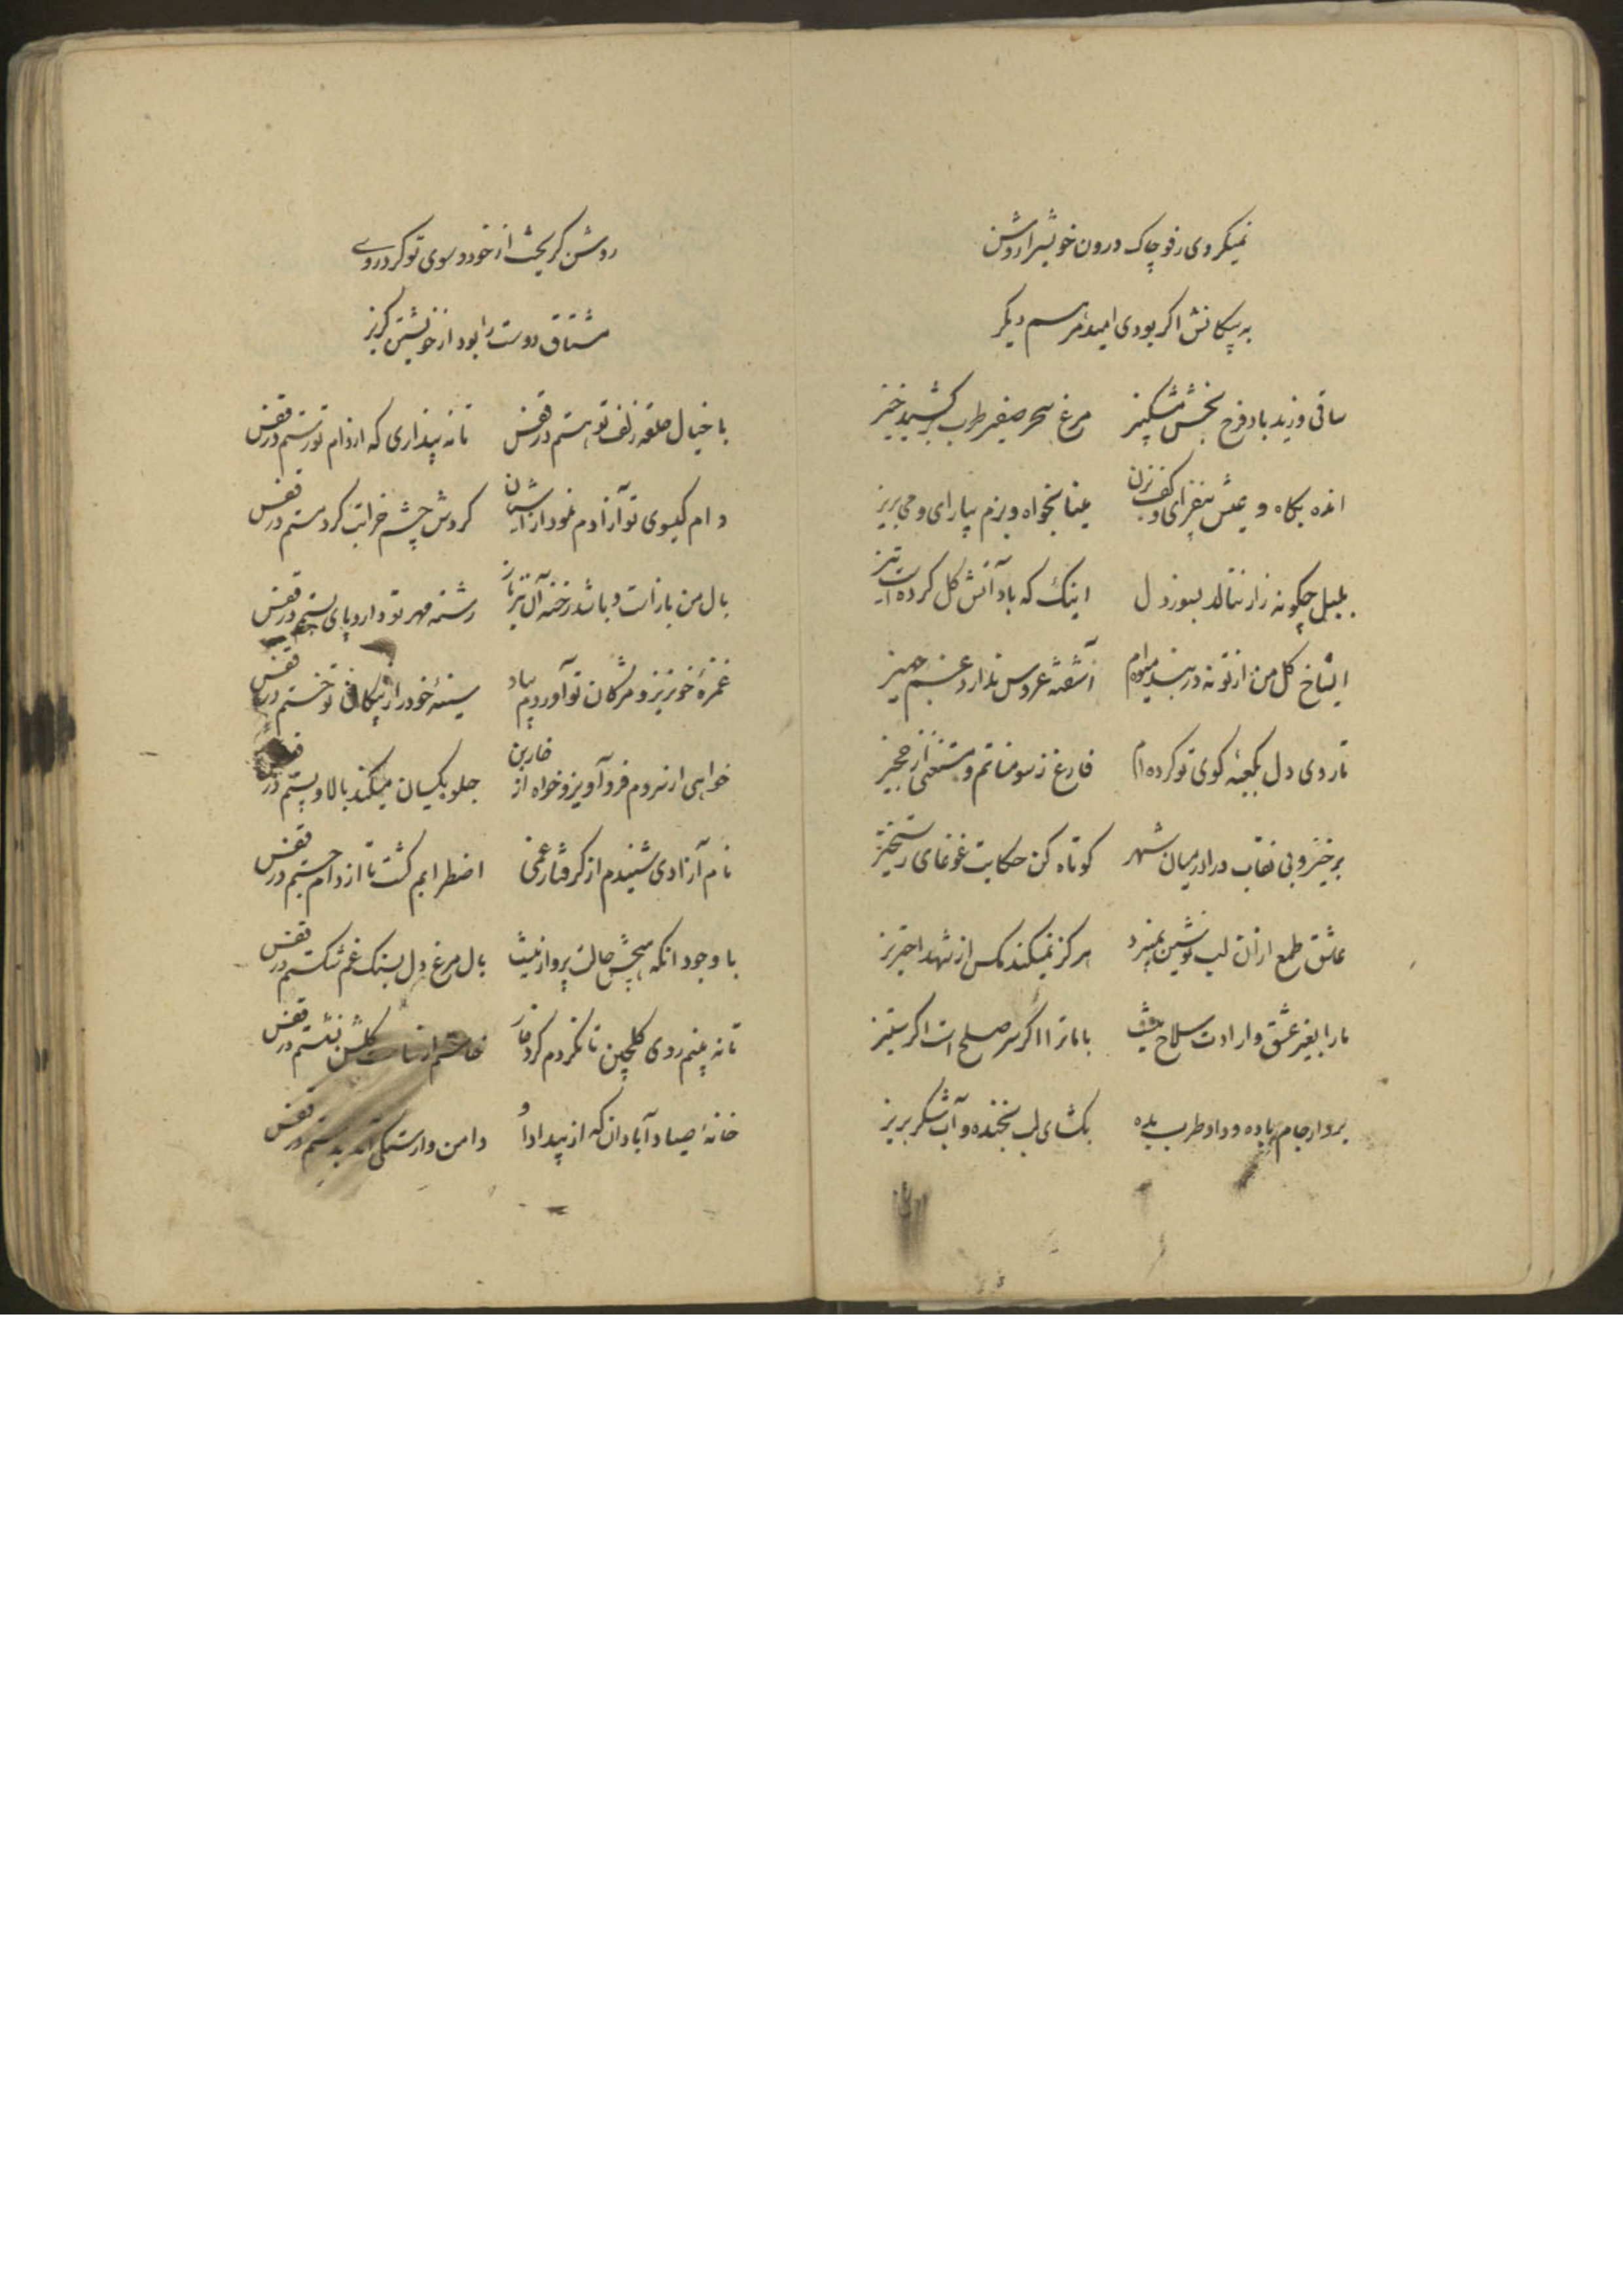 نمیکردی رفو چاک درون خویش را روشن
به پیکانش اگر بودی امید مرهم دیگر
ساقی وزید باد فرح بخش مشکبیز مرغ سحر صفیر طرب برکشید خیز
انده بکاه و عیش بیفزای و کف بزن مینا بخواه و بزم بیارای و می بریز
بلبل چگونه زار ننالد بسوز دل اینک که باد آتش گل کرده است تیز
ای شاخ گل من از تو نه در بند میوه‌ام آشفته عروس ندارد غم جهیز
تا روی دل بکعبه کوی تو کرده‌ام فارغ ز سومناتم و مستغنی از حجیز
برخیز و بی نقاب درا در میان شهر کوتاه کن حکایت غوغای رستخیز
عاشق طمع از آن لب نوشین نمیبرد هرگز نمیکند مکس از شهد احتریز
ما را بغیر عشق و ارادت سلاح نیست با ما ترا اگر سر صلح است اگر ستیز
بردار جام باده و داد طرب بده بگشای لب بخنده و آب شکر بریز
روشن گریخت از خود و سوی تو کرد روی
مشتاق دوست را بود از خویشتن گریز
با خیال حلقه زلف تو هستم در قفس تا نه پنداری که از دام تو رستم در قفس
دام گیسوی تو آزادم نمود از آشیان گردش چشم خرابت کرد مستم در قفس
بال من باز است و باشد رخنه آن نیز باز رشته مهر تو دارد پای بستم در قفس
غمزه خونریز و مژگان تو آوردم بیاد سینهٔ خود را ز پیکان تو خستم در قفس
خواهی از سروم فرو آویز و خواه از خاربن جلوه یکسان میکند بالا و پستم در قفس
نام آزادی شنیدم از گرفتار غمی اضطرابم کشت تا از دام جستم در قفس
با وجود آنکه هیچش حالت پرواز نیست بال مرغ دل بسنگ غم شکستم در قفس
تا نه بینم روی گلچین تا نگردم گرد خار خاستم از ساحت گلشن نشستم در قفس
خانهٔ صیاد آبادان که از بیداد او دامن وارستگی آمد بدستم در قفس